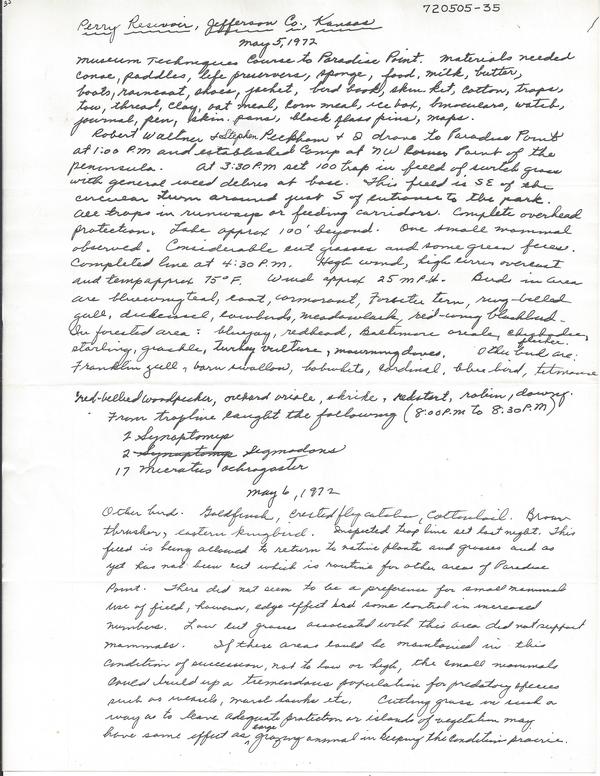 720505-35
Perry Resevoir, Jefferson Co., Kansas
May 5, 1972
Museum Techniques Course to Paradise Point. Materials needed
canoe, paddles, life preservers, sponge, food, milk, butter,
boots, raincoat, shoes, jacket, bird book, skin kit, cotton, traps,
tow, thread, clay, oat meal, corn meal, ice box, binoculars, watch,
journal, pen, skin pans, black glass pins, maps.
Robert Waltner + Stephen Peckham + I drove to Paradise Point
at 1:00 P.M and established Camp at NW Corner Point of the
peninsula. At 3:30 P.M set 100 trap in field of switch grass
with general weed debres at base. This field is SE of the
circular turn around just S of entrance to the park.
All traps in runways or feeding carridors. Complete overhead
protection. Lake approx 100' beyond. One small mammal
observed. Considerable cut grasses and some green feces.
Completed line at 4:30 P.M. High wind, high cirrus overcast
and temp approx 75°F. Wind approx 25 M.P.H. Birds in area
are bluewing teal, coot, cormorant, Forster tern, ring-belled
gull, dickcissel, cowbirds, meadowlark, red-wing blackbird.
In forested area: bluejay, redhead, Baltimore oriole, chickadee,
flicker.
starling, grackle, turkey vulture, mourning doves. Other bird are:
Franklin gull, barn swallow, bobwhite, cardinal, blue bird, titmouse
red-bellied woodpecker, orchard oriole, shrike, redstart, robin, downy.
From trapline caught the following (8:00 P.M to 8:30 P.M)
2 Synaptomys
2 Synaptomys Sigmodons
17 Microtus ochrogaster
May 6, 1972
Other bird. Goldfinch, Crested flycatcher, Cottontail. Brown
thrasher, eastern kingbird. Inspected trap line set last night. This
field is being allowed to return to native plants and grasses and as
yet has not been cut which is routine for other areas of Paradise
Point. There did not seem to be a preference for small mammal
use of field, however, edge effect had some control in increased
numbers. Low cut grasses associated with this area did not support
mammals. If these areas could be maintained in this
condition of succession, not to low or high, the small mammals
could build up a tremendous population for predatory species
such as weasels, marsh hawks etc. Cutting grass in such a
way as to leave adequate protection or islands of vegetation may
have some effect as large grazing animal in keeping the condition prairie.